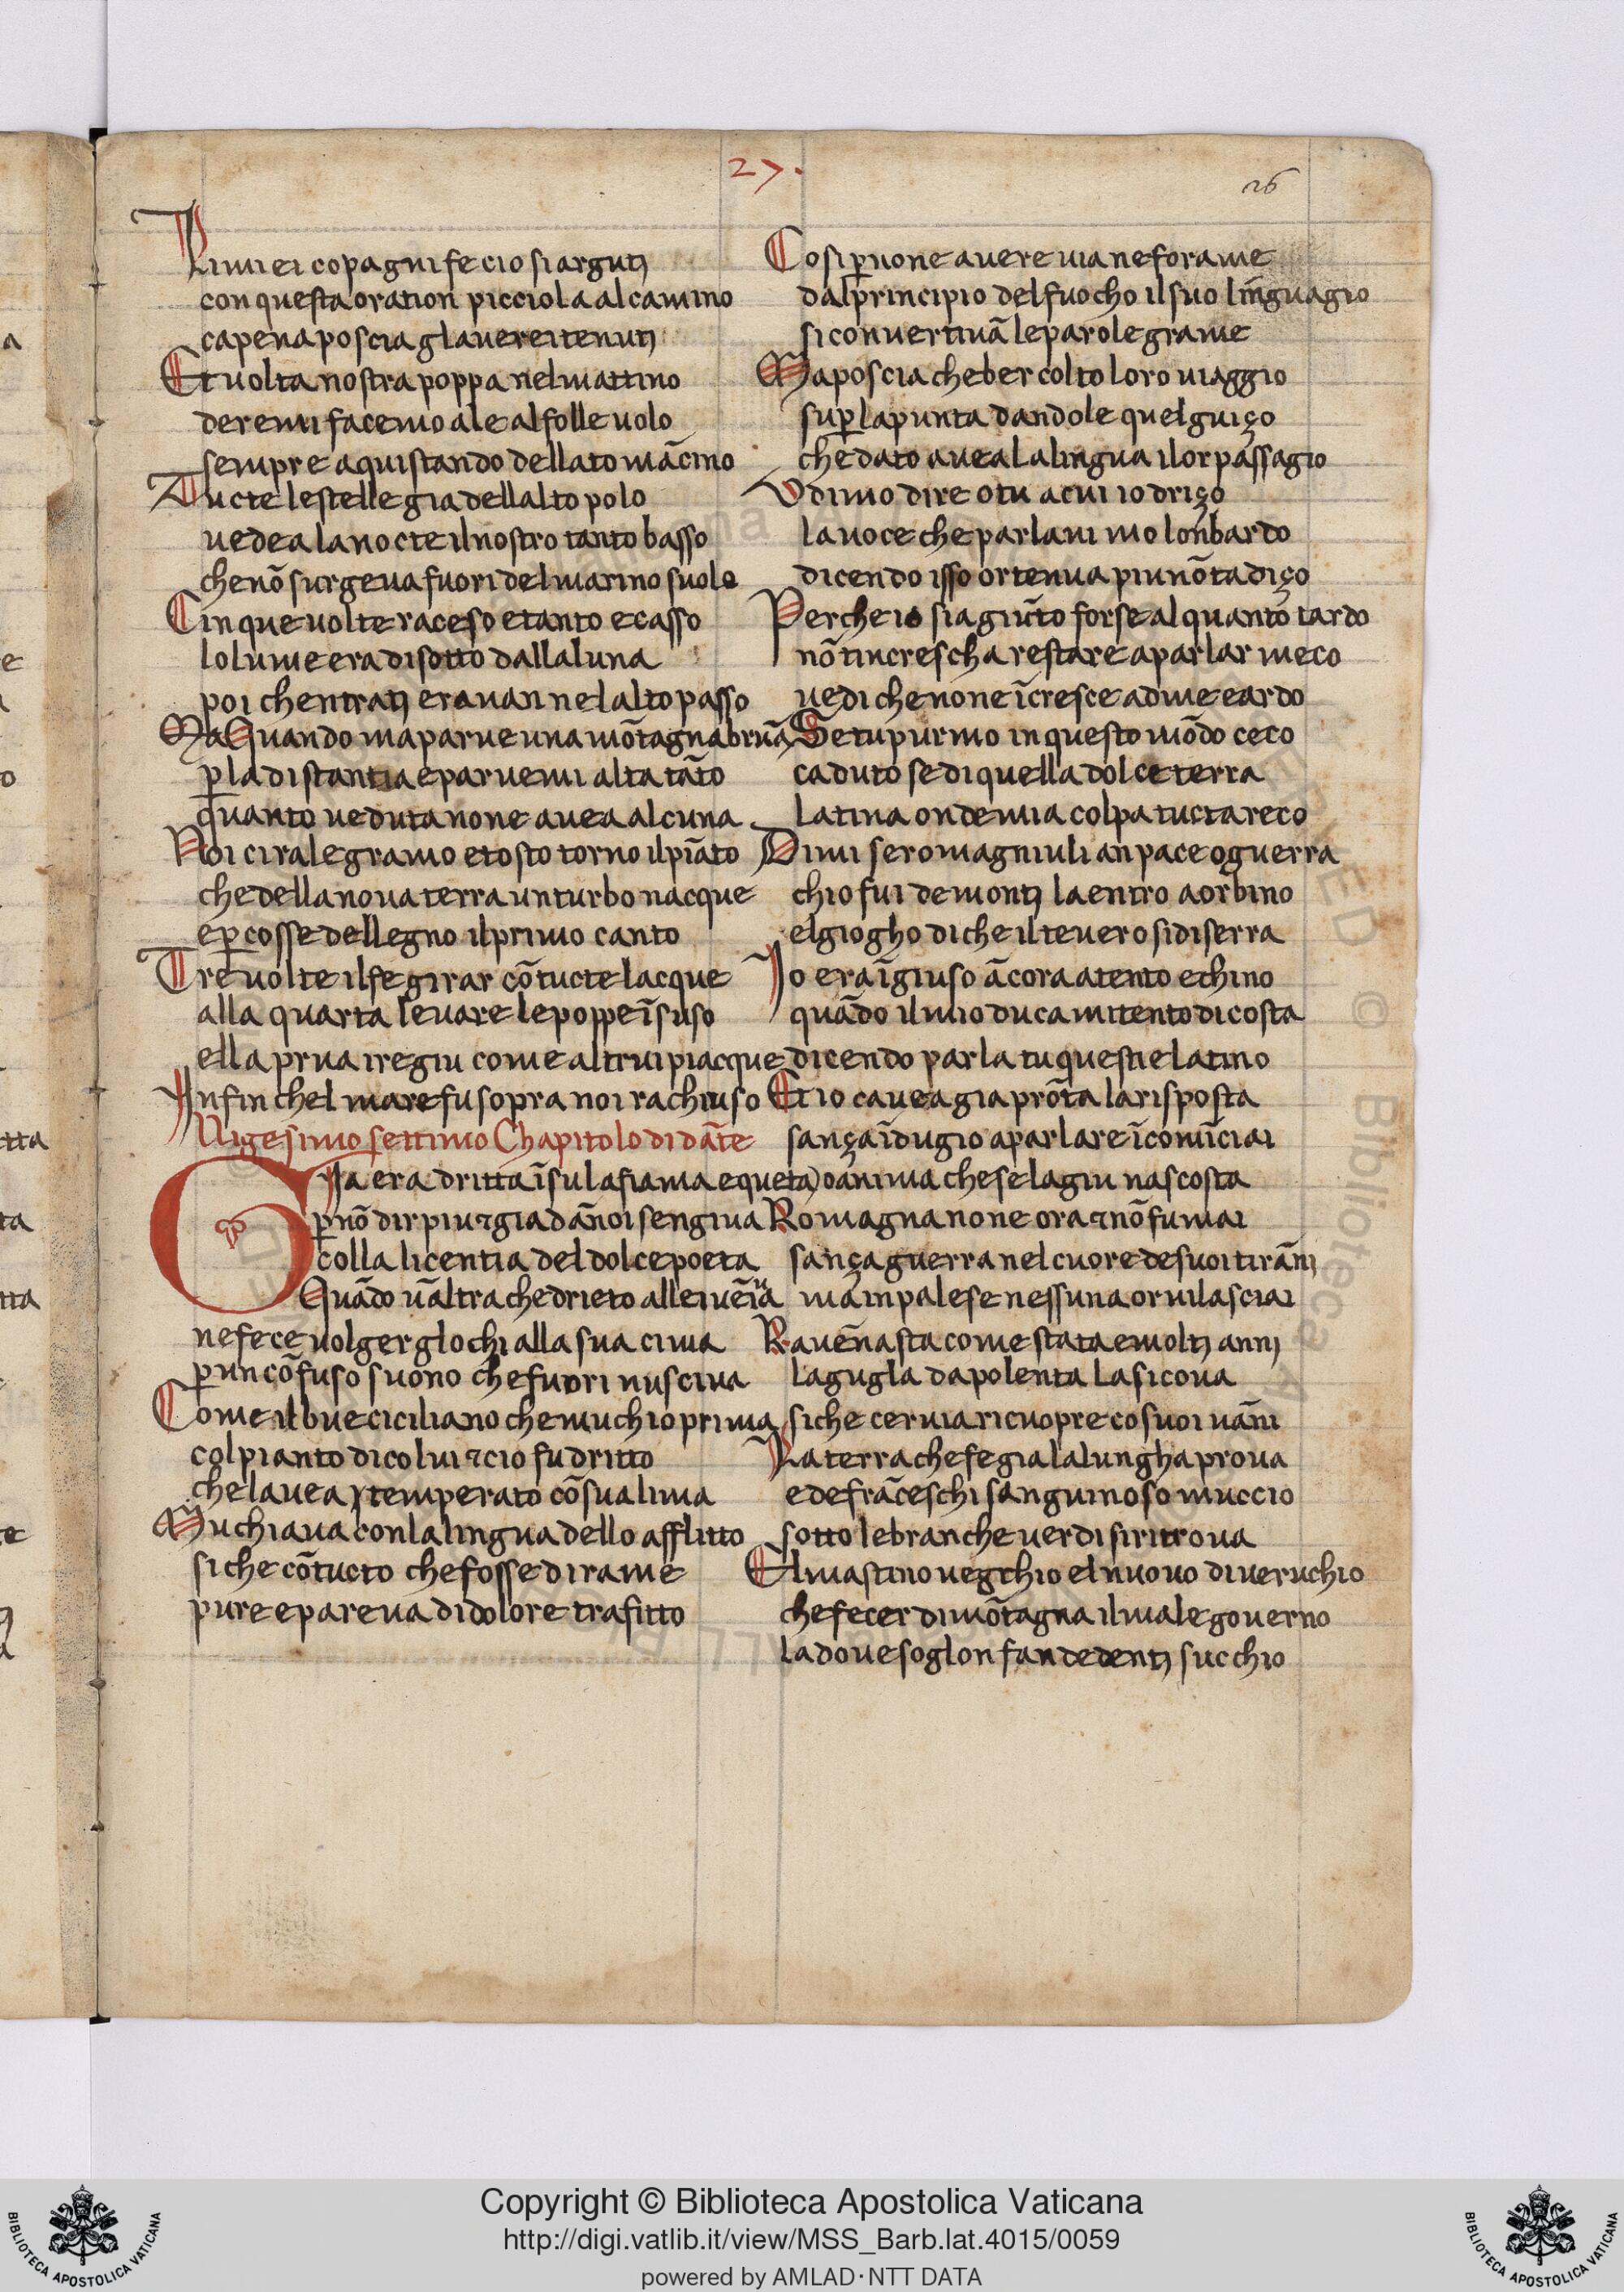 27.
26
Li miei copagni fe cio si arguti
con questa oration picciola al camino
capena poscia glaverei tenuti
Et volta nostra poppa nel mattino
de remi facemo ale al folle volo
sempre aquistando dellato mācino
Tucte le stelle gia dellalto polo
vedea la nocte il nostro tanto basso
che nō surgeva fuori del marino suolo
Cinque volte raceso e tanto e casso
lo lume era di sotto dalla luna
poi chentrati eravan nel alto passo
Ma Quando maparve una mōtagna brūa
p̱ la distantia e parvemi alta tāto
quanto veduta none avea alcuna
Noi ci ralegramo e tosto torno il piāto
che della nova terra un turbo nacque
e p̱cosse dellegno il primo canto
Tre volte il fe girar cō tucte lacque
alla quarta levare le poppe ī suso
ella prua ire giu come altrui piacque
Infin chel mare fu sopra noi rachiuso
Vigesimo settimo Chapitolo di dāte
Gia era dritta ī su la fiama e queta
p̱ nō dir piu ⁊ gia da nōi sen giva
colla licentia del dolce poeta
Quādo ūaltra che drieto allei venīa
ne fece volger glochi alla sua cima
p̱ un cōfuso suono che fuori nusciva
Come il bue ciciliano che muchio prima
col pianto di colui ⁊ cio fu dritto
che lavea temperato cō sua lima
Muchiava con la lingua dello afflitto
si che cō tucto che fosse di rame
pure e pareva di dolore trafitto
Cosi p̱ none avere via ne forame
dal principio del fuocho il suo līnguagio
si convertivā le parole grame
Ma poscia cheber colto loro viaggio
su p̱ la punta dandole quel guiço
che dato avea la lingua i lor passagio
Udimo dire o tu a cui io driço
la voce che parlavi mo lonbardo
dicendo isso or ten va piu nō tadiço
Perche io sia giūto forse alquanto tardo
nō tincrescha restare a parlar meco
vedi che none īcresce ad me e ardo
Se tu pur mo in questo mōdo ceco
caduto se di quella dolce terra
latina onde mia colpa tucta reco
Dimi se romagniuli an pace o guerra
chio fui de monti la entro a orbino
el giogho di che il tevero si diserra
Io era īgiuso ācora atento e chino
quādo il mio duca mi tento di costa
dicendo parla tu questi e latino
Et io cavea gia prōta la risposta
sança īdugio a parlare īcomīciai
o anima che se la giu nascosta
Romagna none ora ⁊ nō fu mai
sança guerra nel cuore de suoi tirāni
ma in palese nessuna or vi lasciai
Ravēna sta come stata e molti anni
lagugla da polenta la si cova
si che cervia ricuopre co suoi vāni
La terra che fe gia la lungha prova
e de frāceschi sanguinoso muccio
sotto le branche verdi si ritrova
El mastino vegchio el nuovo di veruchio
che fecer di mōtagna il male governo
la dove soglon fan de denti succhio
Copyright © Biblioteca Apostolica Vaticana
http://digi.vatlib.it/view/MSS_Barb.lat.4015/0059
powered by AMLAD·NTT DATA
BIBLIOTECA APOSTOLICA VATICANA
BIBLIOTECA APOSTOLICA VATICANA